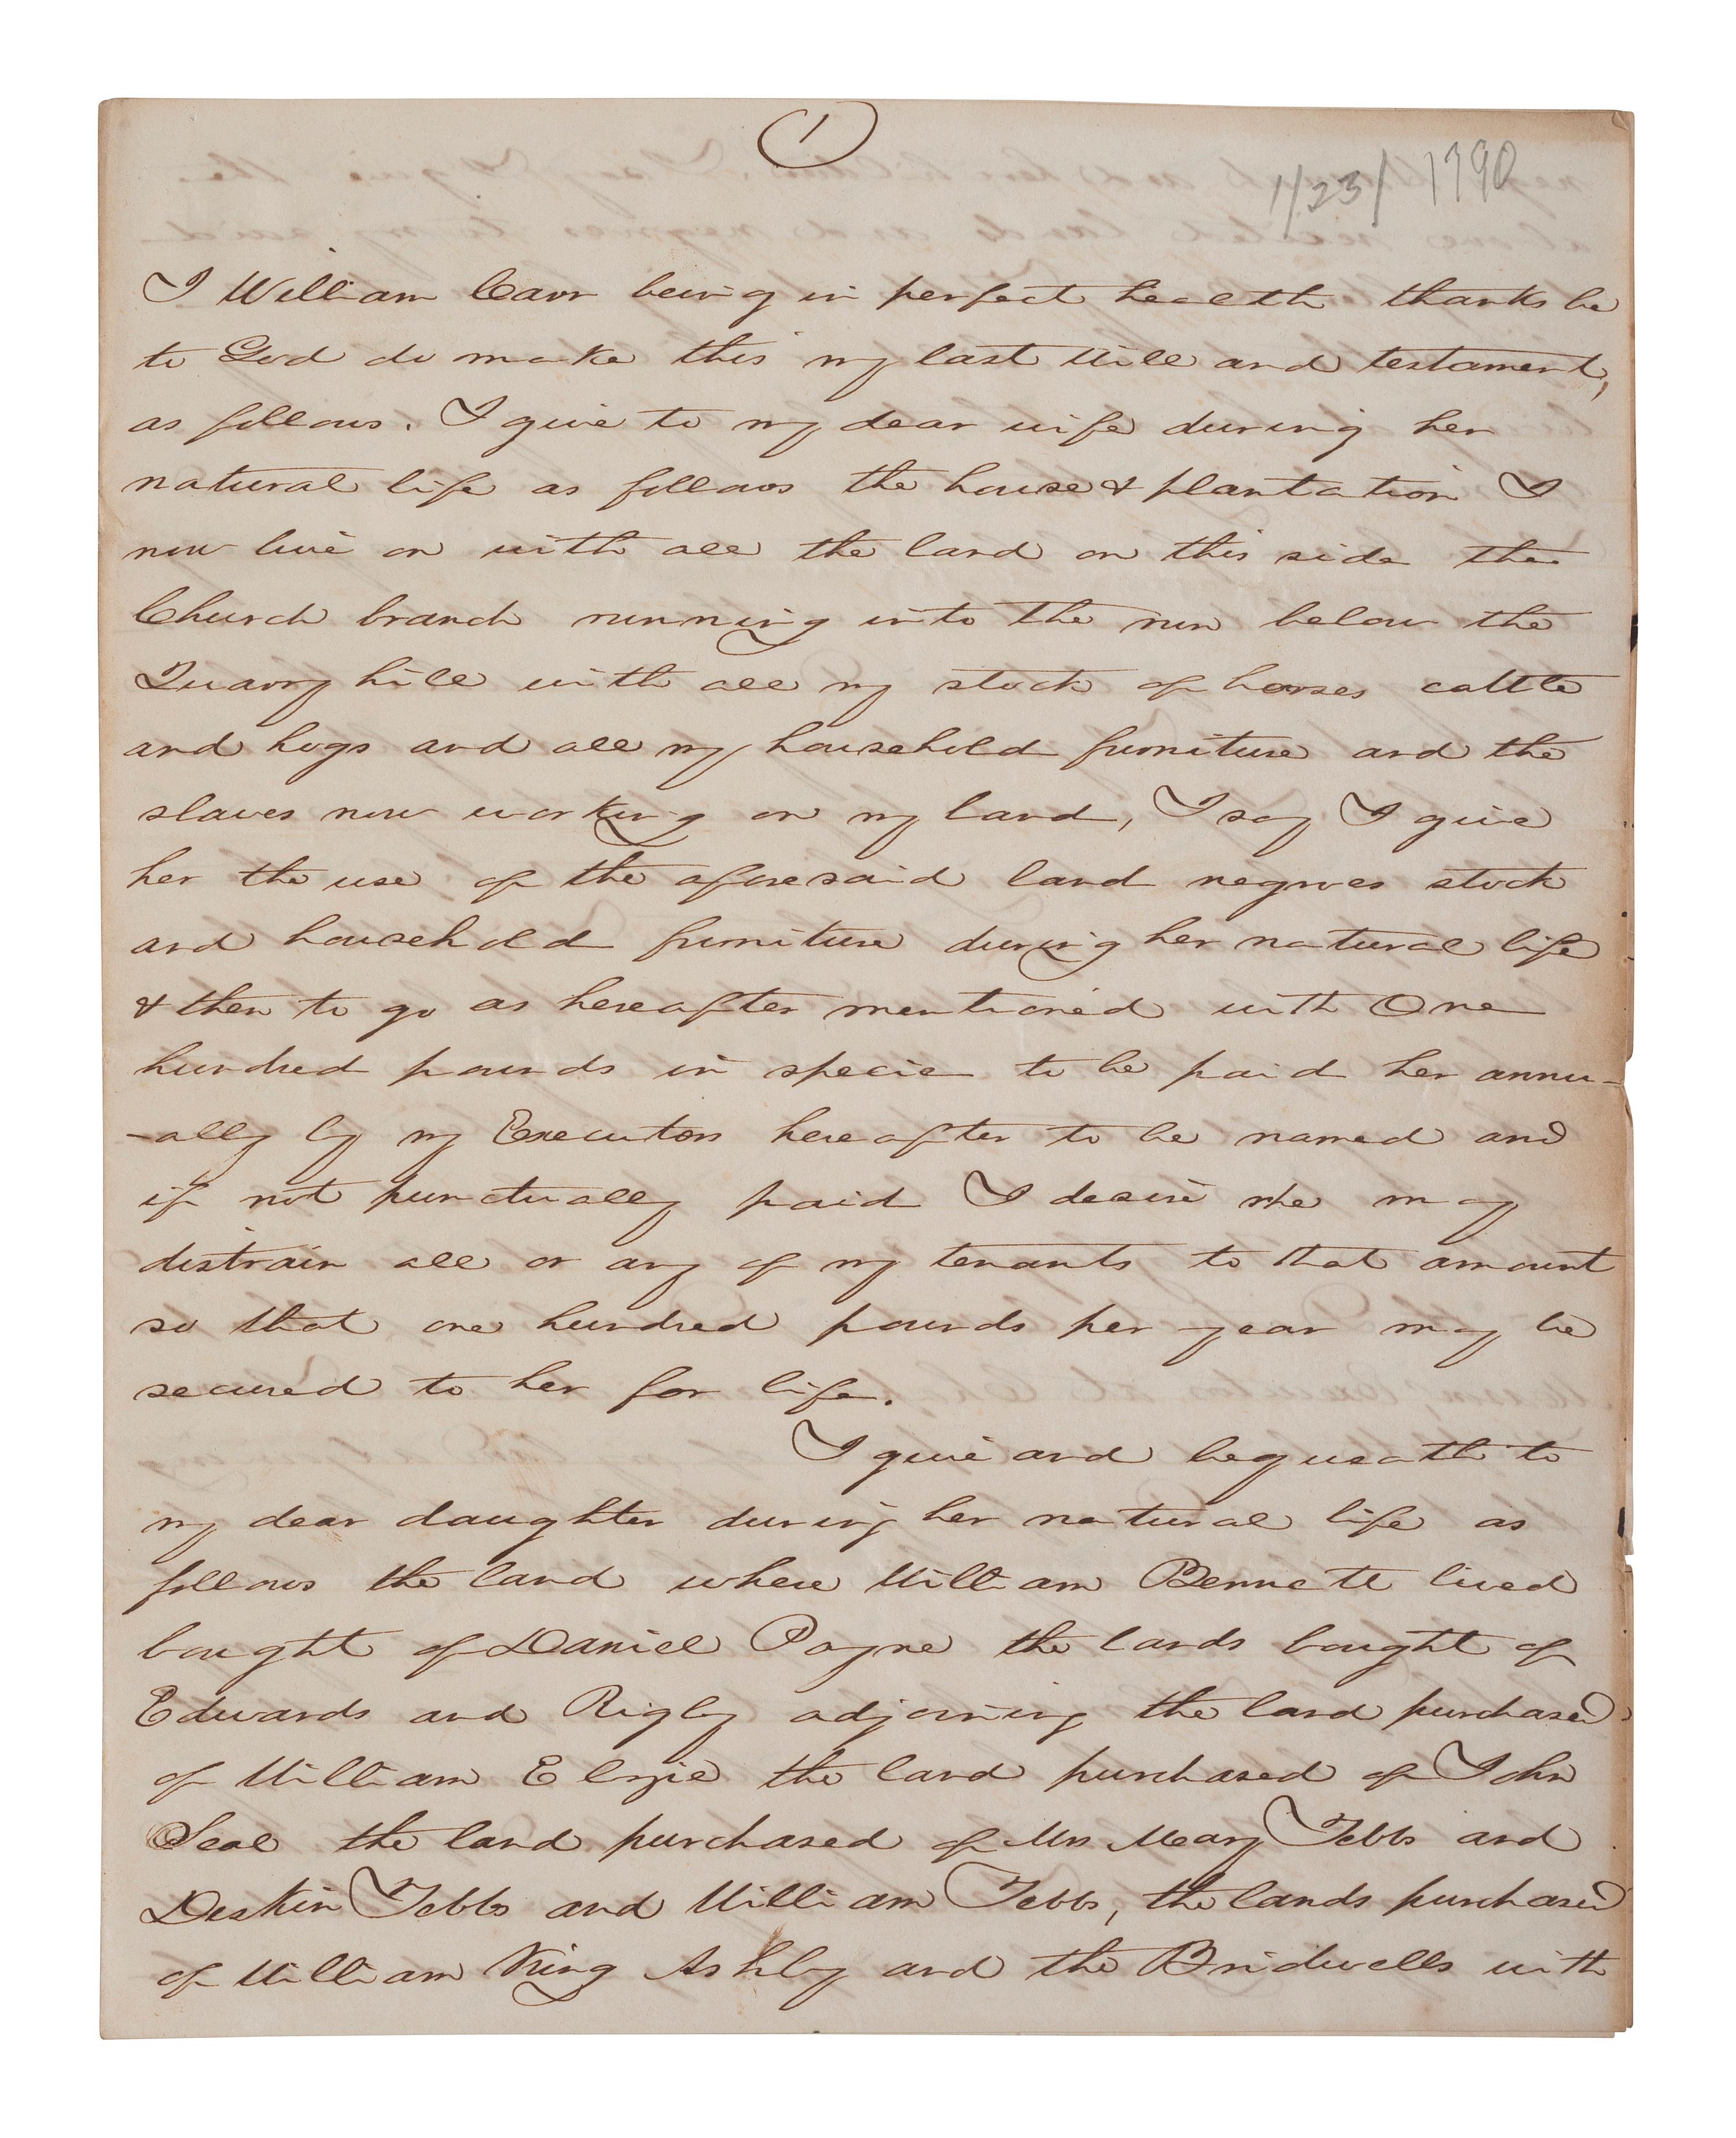 1
1/23/1790
I William Carr being in perfect health thanks be
to God do make this my last Will and testament,
as follows. I give to my dear wife during her
natural life as follows the house & plantation I
now live on with all the land on this side the
Church branch running into the run below the
Quarry hill with all my stock of horses cattle
and hogs and all my household furniture and the
slaves now working on my land, I say I give
her the use of the aforesaid land negroes stock
and household furniture during her natural life
& then to go as hereafter mentioned with One
hundred pounds in specie to be paid her annu-
-ally by my Executors hereafter to be named and
if not punctually paid I desire she may
distrain all or any of my tenants to that amount
so that one hundred pounds per year may be
secured to her for life.
I give and bequeath to
my dear daughter during her natural life as
follows the land where William Bennett lived
bought of Daniel Payne the lands bought of
Edwards and Rigby adjoining the land purchased
of William Elzie the land purchased of John
Seal the land purchased of Mrs Mary Tebbs and
Deskin Tebbs and William Tebbs, the lands purchased
of William King Ashby and the Bridwells with